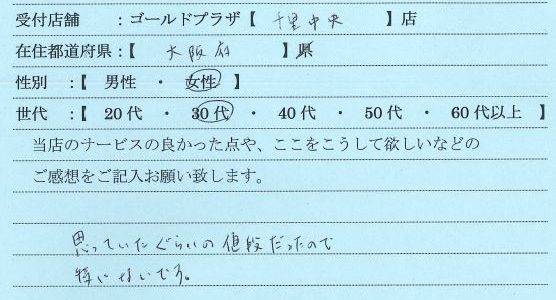 受付店舗 ：ゴールドプラザ【 千里中央 】店
在住都道府県：【 大阪府 】県
性別 ：【 男性 ・ 女性 】
世代 ：【 20代 ・ 30代 ・ 40代 ・ 50代 ・ 60代以上 】
当店のサービスの良かった点や、ここをこうして欲しいなどの
ご感想をご記入お願い致します。
思っていたぐらいの値段だったので
特にないです。